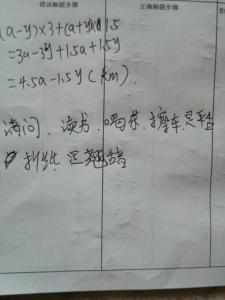 错误解题步骤
正确解题步骤
(a-y)×3+(a+y)×1.5
=3a-3y+1.5a+1.5y
=4.5a-1.5y(km).
请问、读书、喝茶、擦车是
折纸 是